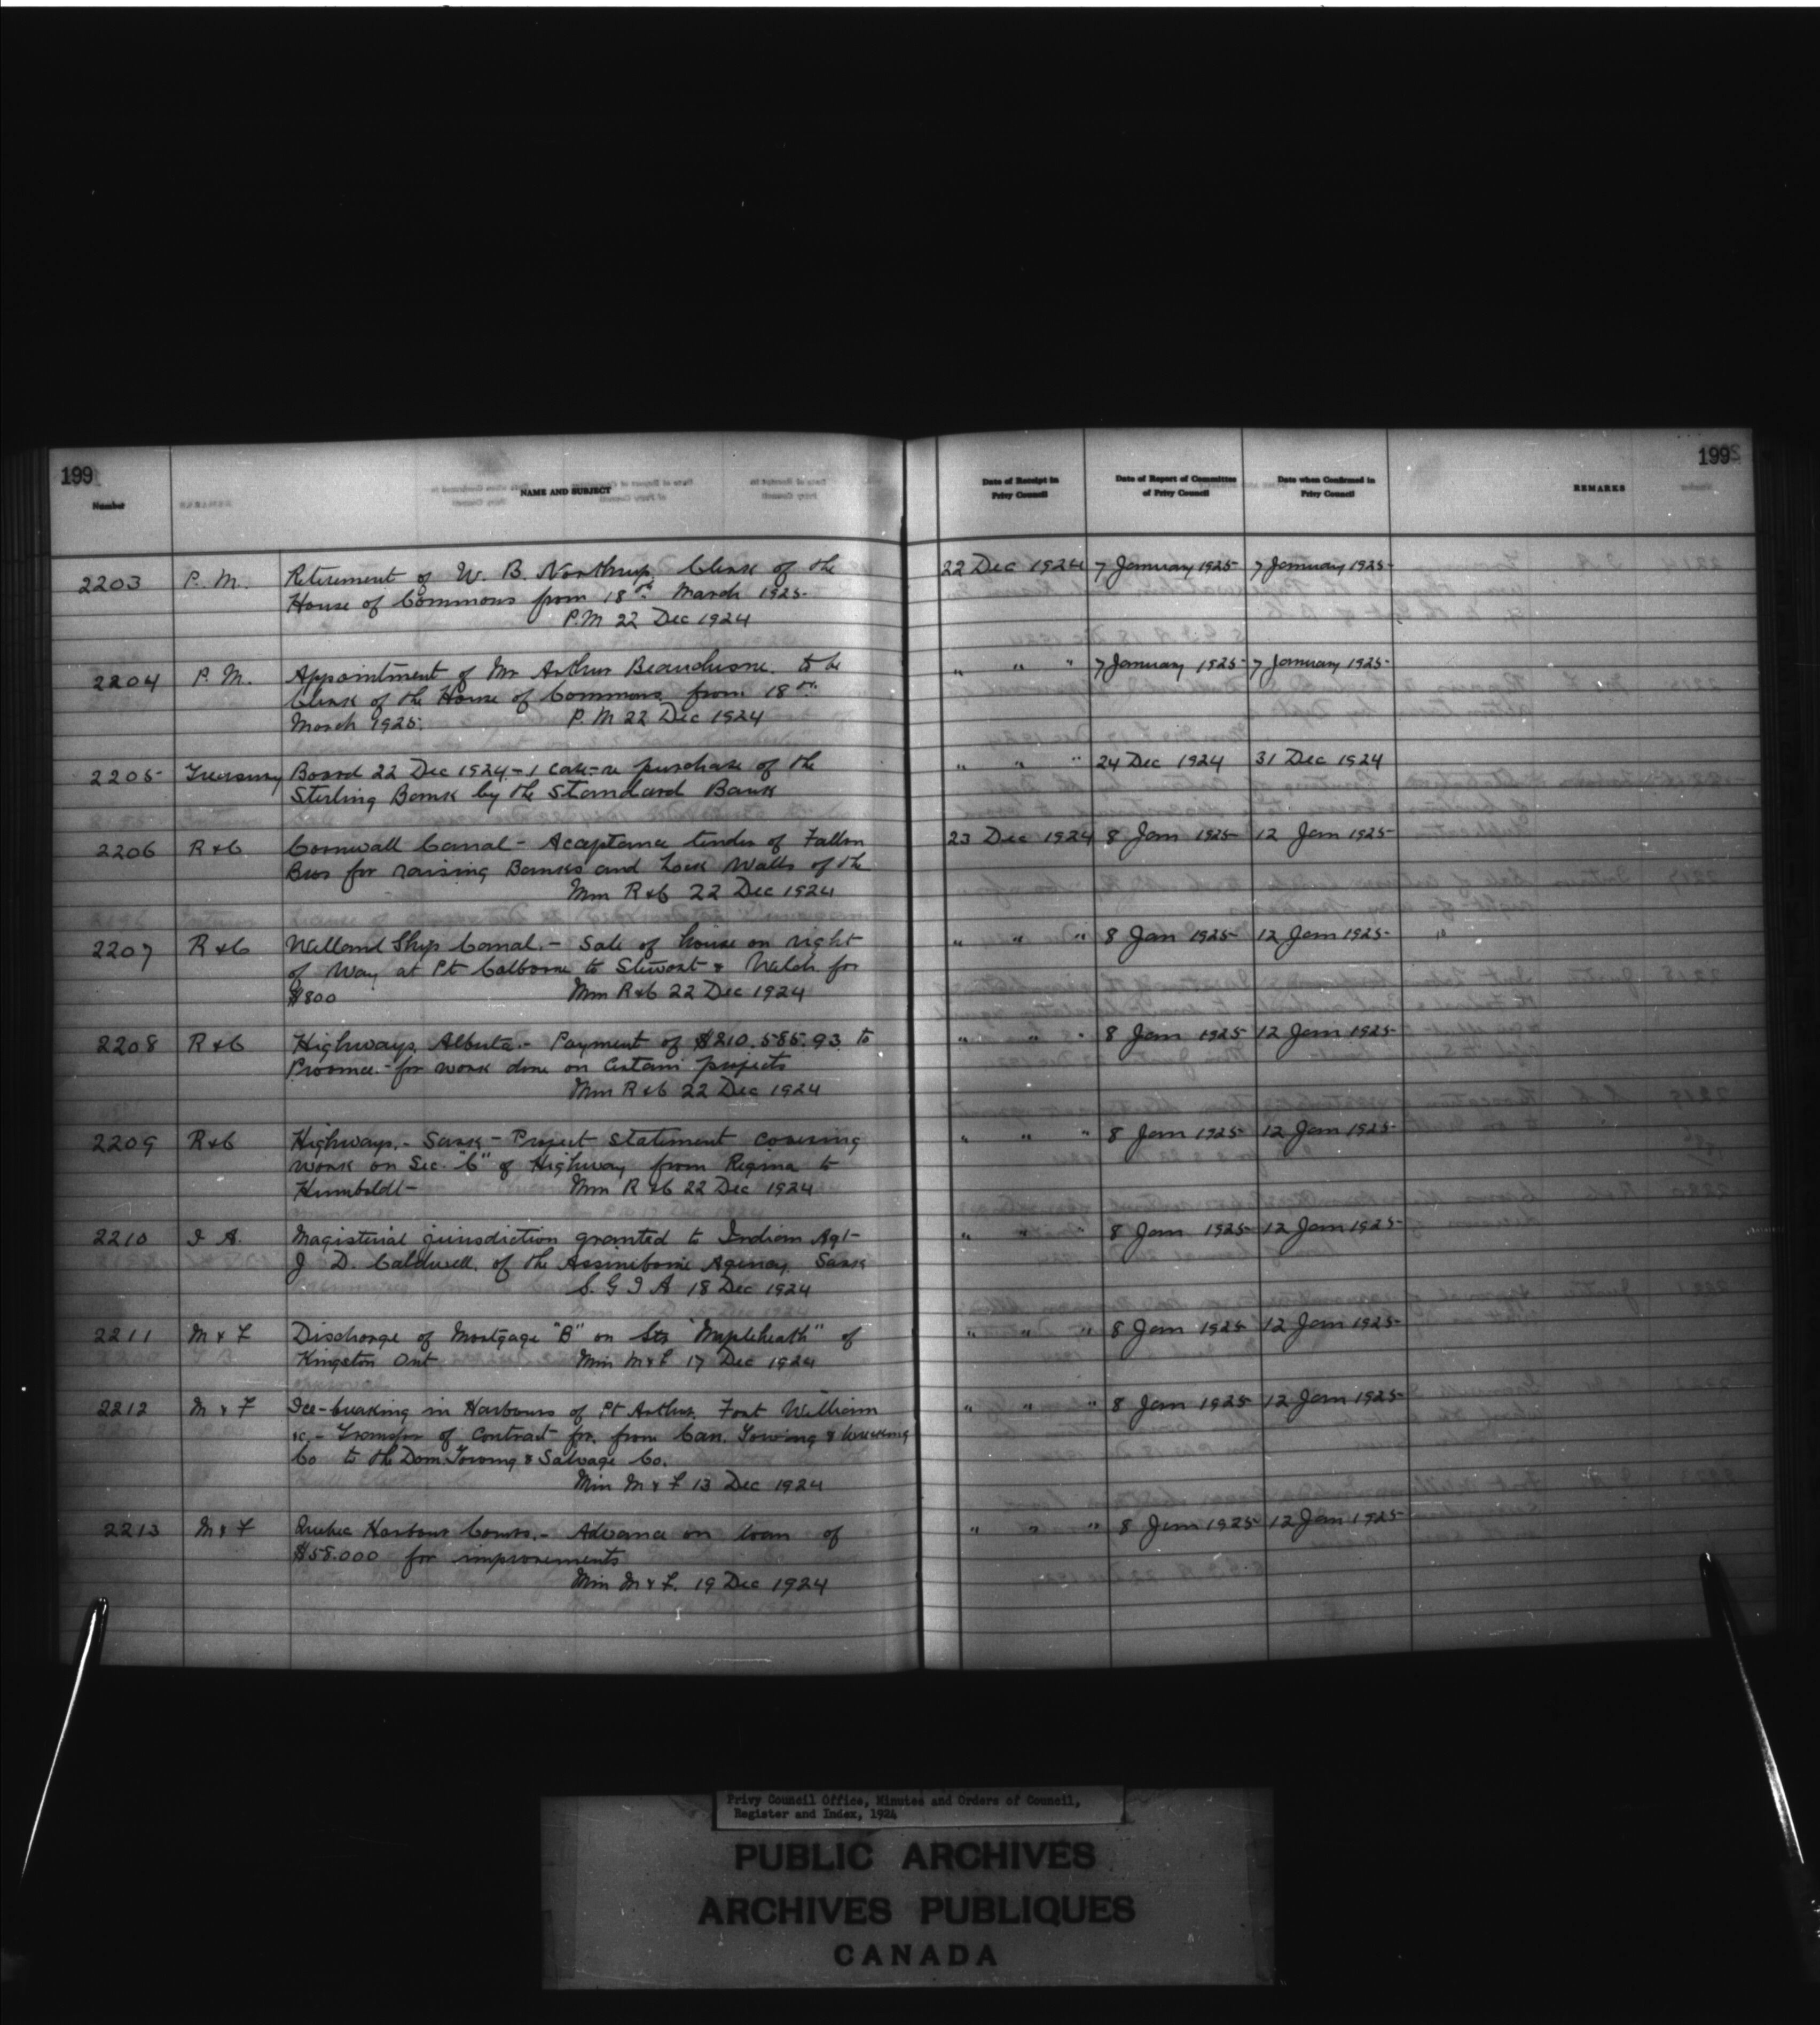 199
199
Number
NAME AND SUBJECT
Date of Receipt in Privy Council
Date of Report of Committee of Privy Council
Date when Confirmed in Privy Council
REMARKS
2203 P. M. Retirement of W. B. Northrup Clerk of the 22 Dec 1924 7 January 1925 7 January 1925
House of Commons from 18th March 1925.
P.M 22 Dec 1924
2204 P. M. Appointment of Mr Arthur Beauchesne to be " " " 7 January 1925 7 January 1925
Clerk of the House of Commons from 18th
March 1925. P.M 22 Dec 1924
2205 Treasury Board 22 Dec 1924 - 1 case - re purchase of the " " " 24 Dec 1924 31 Dec 1924
Sterling Bank by the Standard Bank
2206 R & C Cornwall Canal - Acceptance tender of Fallon 23 Dec 1924 8 Jan 1925 12 Jan 1925
Bros for raising Banks and Lock Walls of the
Min R & C 22 Dec 1924
2207 R & C Welland Ship Canal. - Sale of house on right " " " 8 Jan 1925 12 Jan 1925
of Way at Pt Colborne to Stewart & Welch for
$800 Min R & C 22 Dec 1924
2208 R & C Highways, Alberta. - Payment of $210,585.93 to " " " 8 Jan 1925 12 Jan 1925
Province - for work done on Certain projects
Min R & C 22 Dec 1924
2209 R & C Highways. - Sask - Project statement covering " " " 8 Jan 1925 12 Jan 1925
work on Sec. "C" of Highway from Regina to
Humboldt - Min R & C 22 Dec 1924
2210 I A. Magisterial jurisdiction granted to Indian Agt - " " " 8 Jan 1925 12 Jan 1925
J D. Caldwell, of the Assiniboine Agency, Sask
S. G I A 18 Dec 1924
2211 M & F Discharge of Mortgage "B" on Str "Mapleheath" of " " " 8 Jan 1925 12 Jan 1925
Kingston Ont Min M & F 17 Dec 1924
2212 M & F Ice-breaking in Harbours of Pt Arthur, Fort William " " " 8 Jan 1925 12 Jan 1925
&c, - Transfer of Contract for, from Can. Towing & Wrecking
Co to the Dom. Towing & Salvage Co.
Min M & F 13 Dec 1924
2213 M & F Quebec Harbour Comrs. - Advance on loan of " " " 8 Jan 1925 12 Jan 1925
$58.000 for improvements
Min M & F. 19 Dec 1924
Privy Council Office, Minutes and Orders of Council,
Register and Index, 1924
PUBLIC ARCHIVES
ARCHIVES PUBLIQUES
CANADA